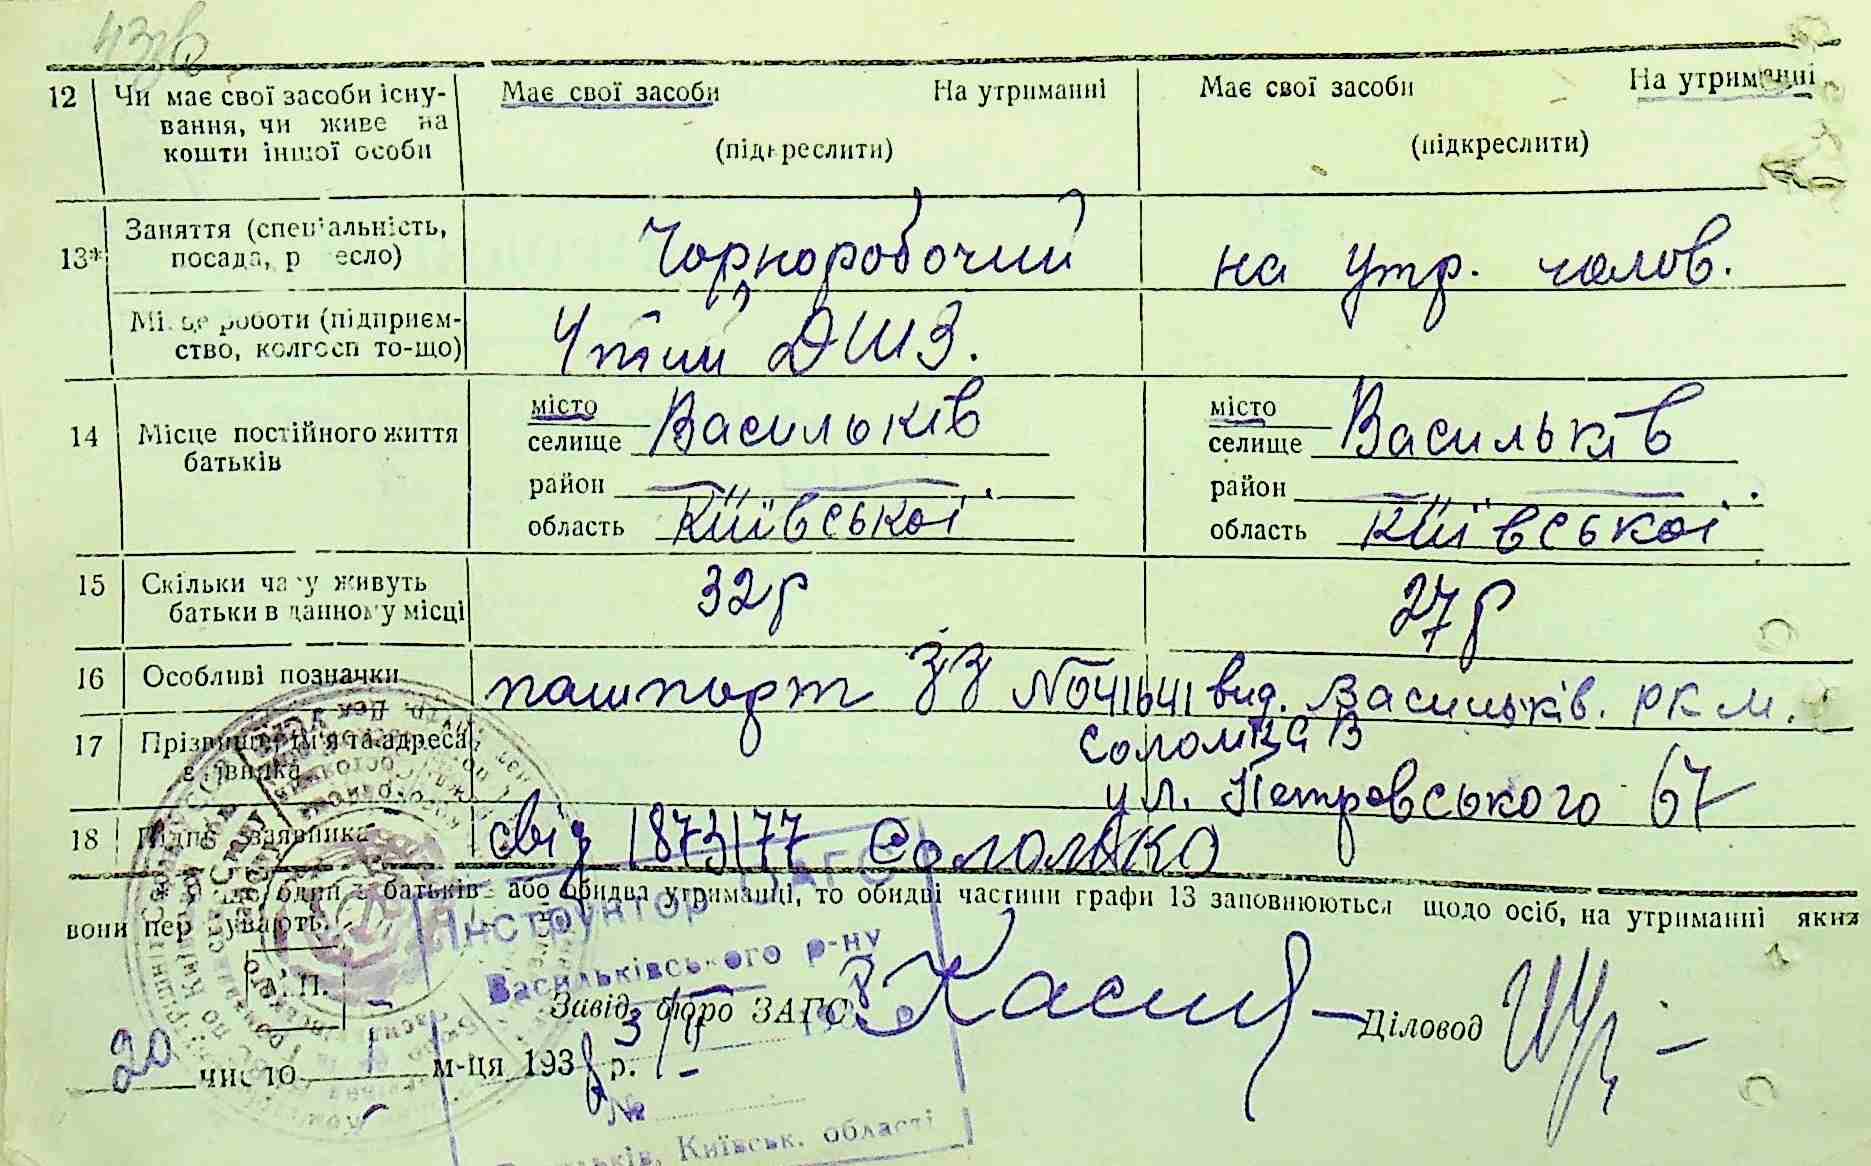 12 Чи має свої засоби існу- Має свої засоби На утриманні Має свої засоби На утриманні
вання, чи живе на
кошти іншої особи (підкреслити) (підкреслити)
13* Заняття (спеціальність, Чорноробочий на утр. чолов.
посада, ремесло)
Місце роботи (підприєм- ДШЗ.
ство, колгосп то-що)
14 Місце постійного життя місто Васильків місто Васильків
батьків селище селище
район — район —
область Київської область Київської
15 Скільки часу живуть 32 р 27 р
батьки в данному місці
16 Особливі позначки пашпорт ЗЗ № 041641 вид. Васильків. РКМ.
17 Прізвище, ім'я та адреса В
заявника ул. Петровського 67
18 Підпис заявника свід 1873177
один з батьків або обидва утриманці, то обидві частини графи 13 заповнюються щодо осіб, на утриманні яких
вони перебувають.
Інструктор ЗАГС
Васильківського р-ну
М. П.
Завід. бюро ЗАГС Діловод
20 число 1 м-ця 1938 р.
№
Київськ. області